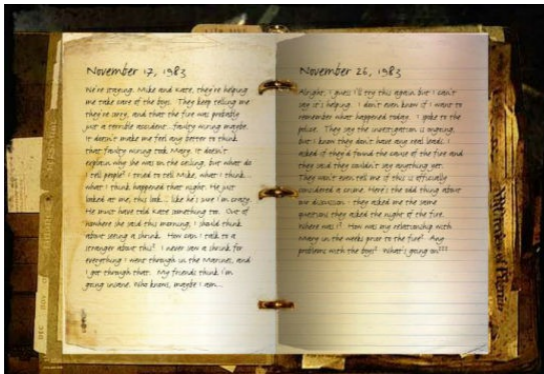 November 17, 1983
We're staying. Mike and Kate, they're helping
me take care of the boys. They keep telling me
they're sorry, and that the fire was probably
just a terrible accident. faulty wiring maybe.
It doesn't make me feel any better to think
that faulty wiring took Mary. It doesn't
explain why she was on the ceiling, but what do
I tell people? I tried to tell Mike, what I think...
what I think happened that night. He just
looked at me, this look... like he's sure I'm crazy.
He must have told Kate something too. Out of
nowhere she said this morning, I should think
about seeing a shrink. How can I talk to a
stranger about this? I never saw a shrink for
everything I went through in the Marines, and
I got through that. My friends think I'm
going insane. Who knows, maybe I am...
November 26, 1983
Alright, I guess I'll try this again but I can't
say it's helping. I don't even know if I want to
remember what happened today. I spoke to the
police. They say the investigation is ongoing,
but I know they don't have any real leads. I
asked if they'd found the cause of the fire and
they said they couldn't say anything yet.
They won't even tell me if this is officially
considered a crime. Here's the odd thing about
our discussion - they asked me the same
questions they asked the night of the fire.
Where was I? How was my relationship with
Mary in the weeks prior to the fire? Any
problems with the boys? What's going on???